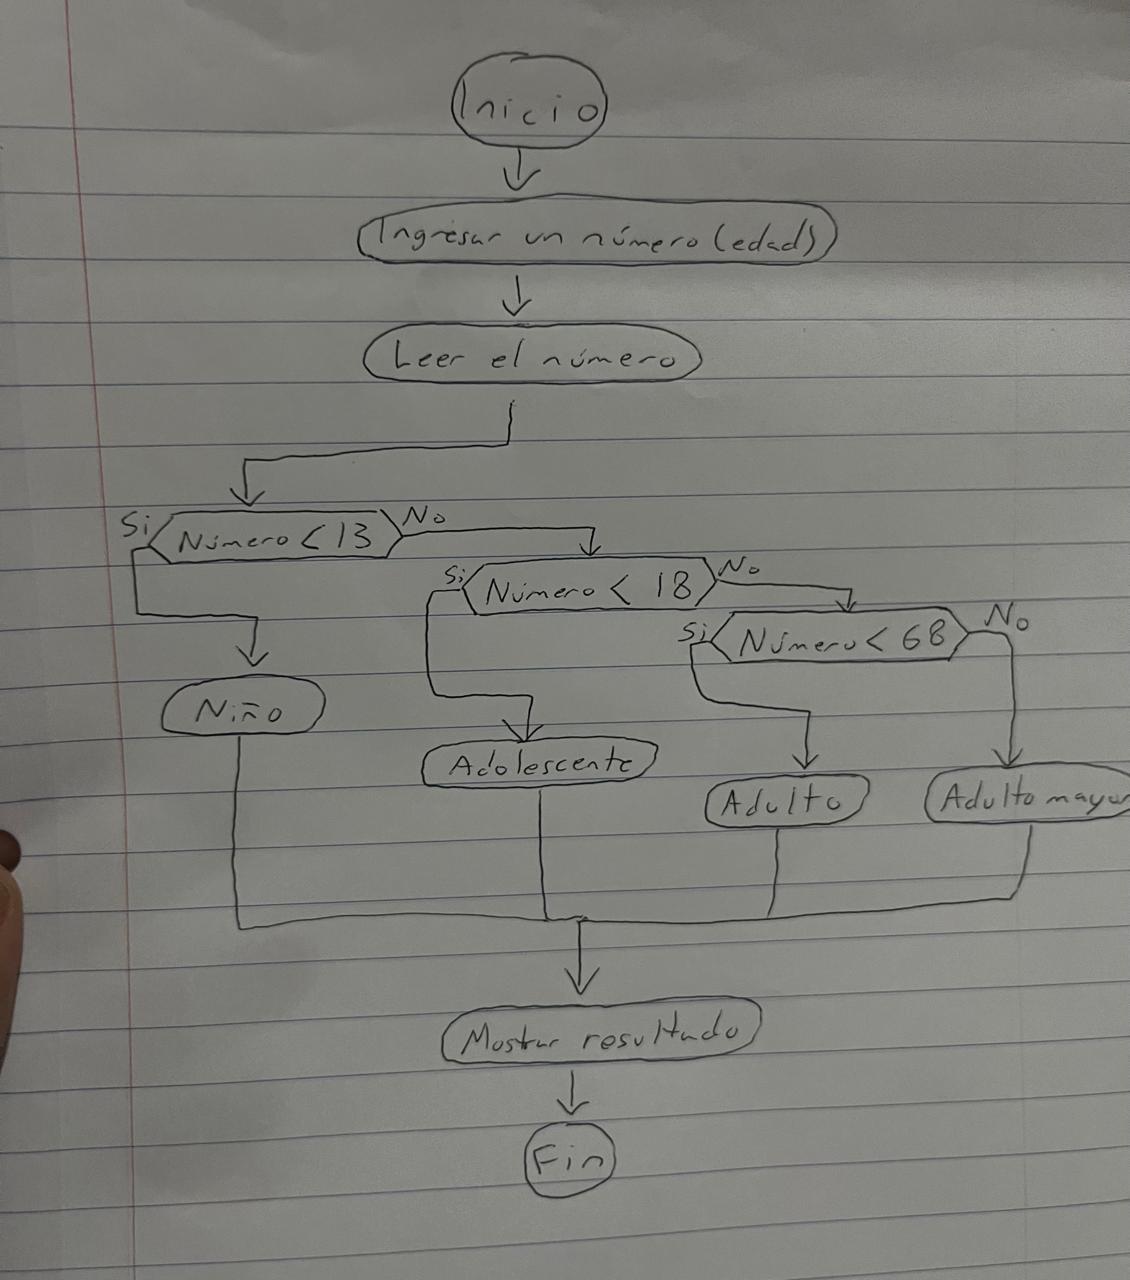 Inicio
Ingresar un número (edad)
Leer el número
Si Número < 13 No
Si Número < 18 No
Si Número < 68 No
Niño
Adolescente
Adulto
Adulto mayor
Mostrar resultado
Fin